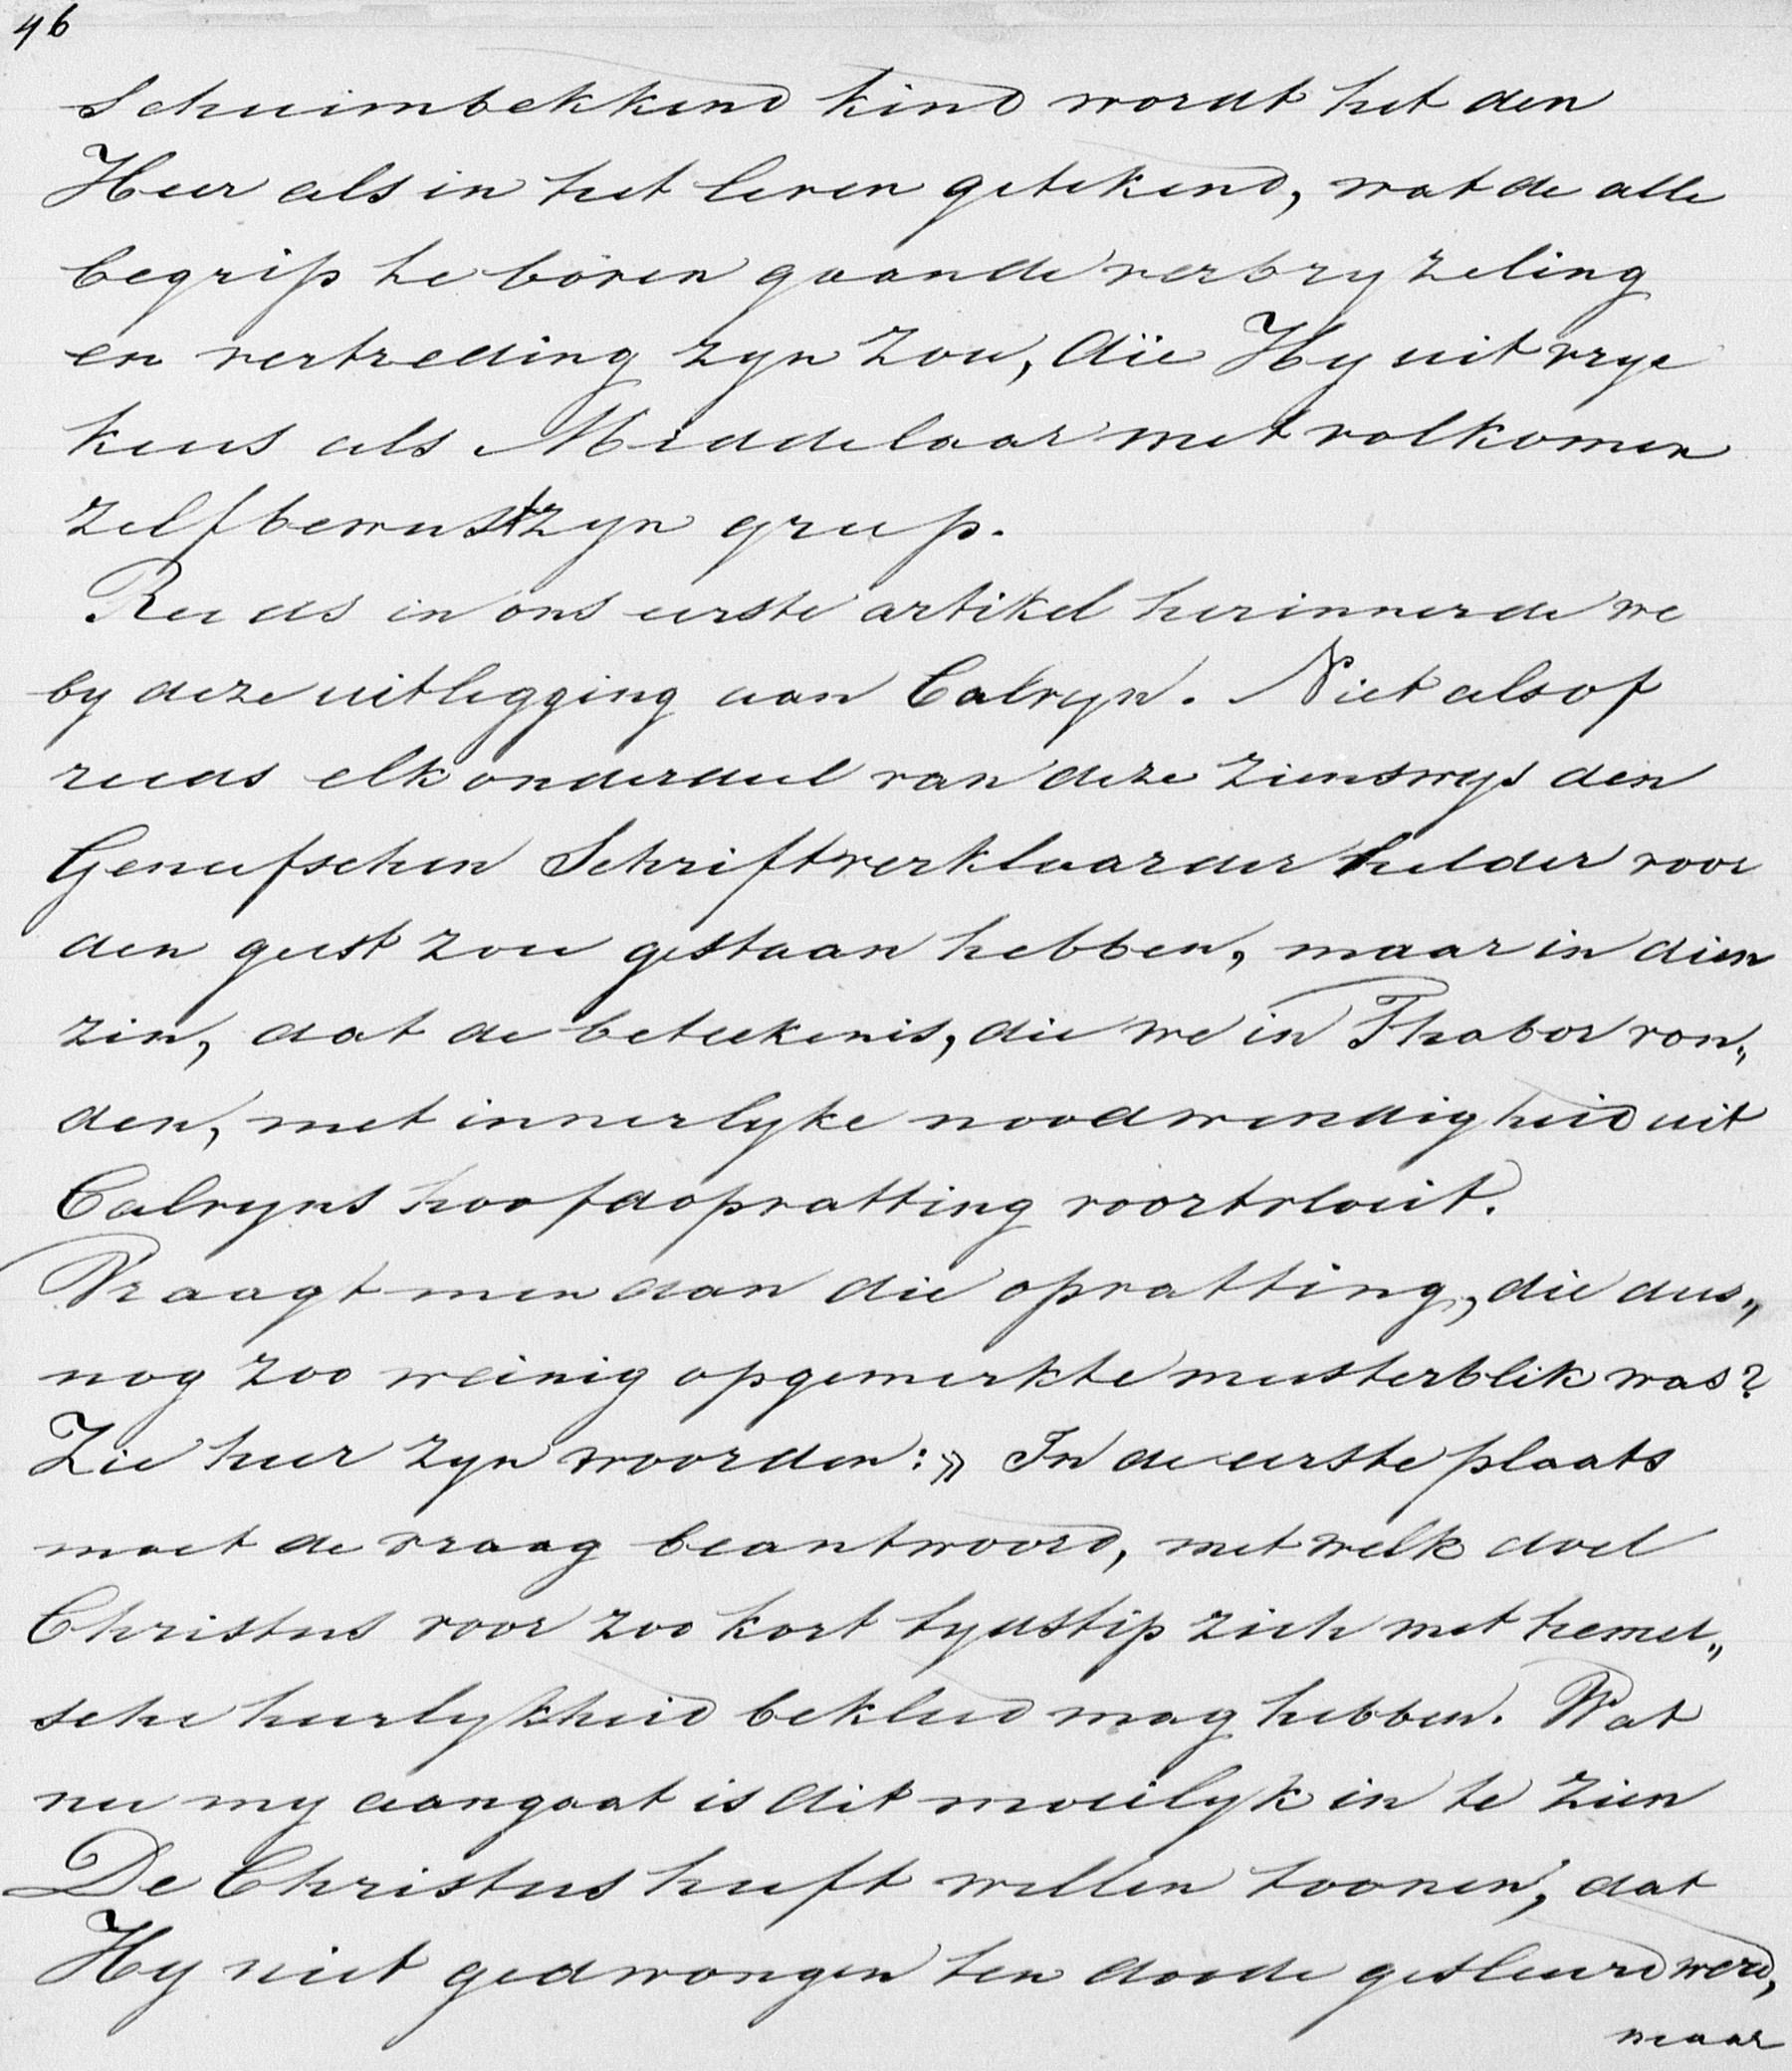 46
schuimbekkend kind wordt het den
Heer als in het leven getekend, wat de alle
begrip te boven gaande verbryzeling
en vertreding zyn zou, die Hy uit vrye
keus als Middelaar met volkomen
zelfbewustzyn greep.
Reeds in ons eerste artikel herinnerde we
by deze uitlegging aan Calvyn. Niet alsof
reeds elk onderdeel van deze zienswys den
Geneefschen Schriftverklaarder helder voor
den geest zou gestaan hebben, maar in dien
zin, dat de beteekenis, die we in Thabor von„
den, met innerlyke noodwendigheid uit
Calvyns hoofdopvatting voortvloeit.
Vraagt men dan die opvatting, die dus„
nog zoo weinig opgemerkte meesterblik was?
Zie hier zyn woorden: „In de eerste plaats
moet de vraag beantwoord, met welk doel
Christus voor zoo kort tydstip zich met hemel„
sche heerlykheid bekleed mag hebben. Wat
nu my aangaat is dit moeilyk in te zien
De Christus heeft willen toonen, dat
Hy niet gedwongen ten doode gesleurd werd,
maar